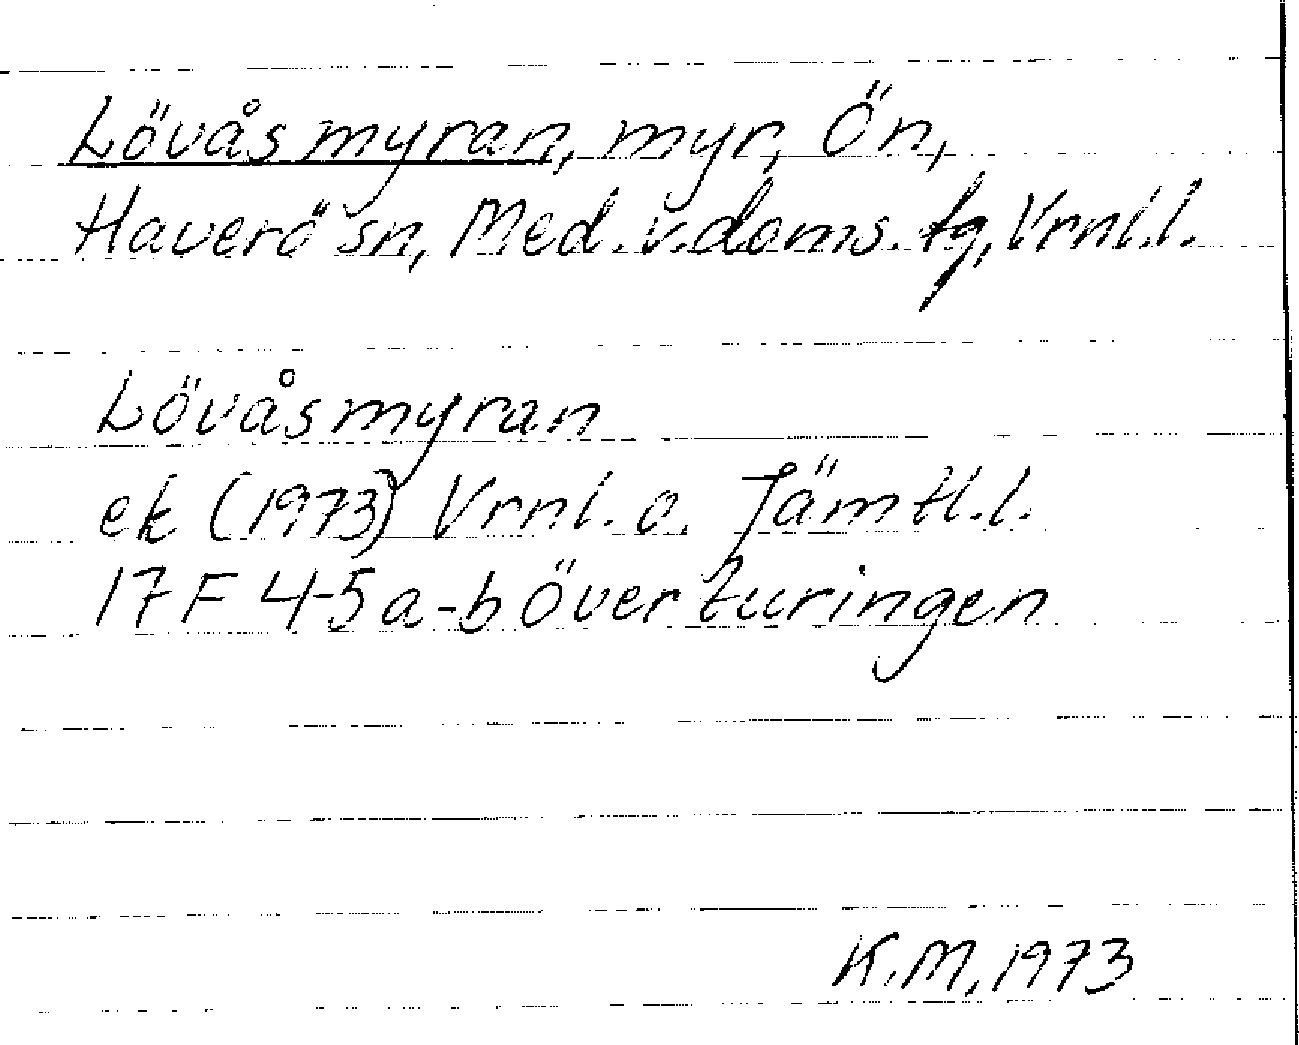 Lövåsmyran, myr, Ön,
Haverö sn, Med. v. doms. tg, Vrnl.l.
Lövåsmyran
ek (1973) Vrnl. o. Jämtl.l.
17F 4-5a-b Överturingen
K.M, 1973